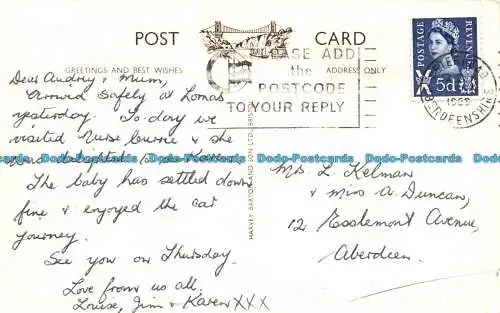 POST CARD
GREETINGS AND BEST WISHES
ADDRESS ONLY
Dear Audrey & Mum,
Arrived safely at Lomas
yesterday. To-day we
visited Nurse Currie & she
was delighted to see Karen.
The baby has settled down
fine & enjoyed the car
journey.
See you on Thursday.
Love from us all.
Louise, Jim & Karen XXX
HARVEY BARTON AND SON LTD., BRISTOL
PLEASE ADD
the
POSTCODE
TO YOUR REPLY
POSTAGE
REVENUE
5d
ABERDEENSHIRE
Mrs L. Kelman
& Miss A. Duncan,
12 Esslemont Avenue,
Aberdeen.
Dodo-Postcards Dodo-Postcards Dodo-Postcards Dodo-Postcards